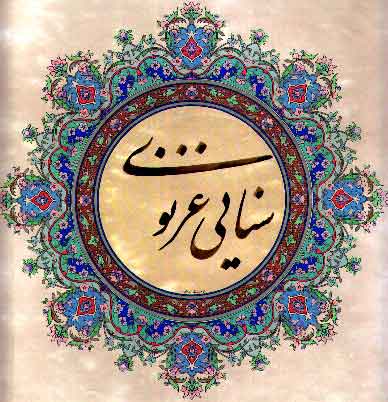 سنایی غزنوی